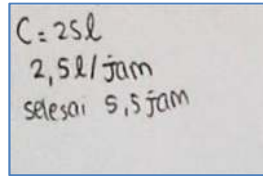 C = 25l
2,5l/jam
selesai 5,5 jam